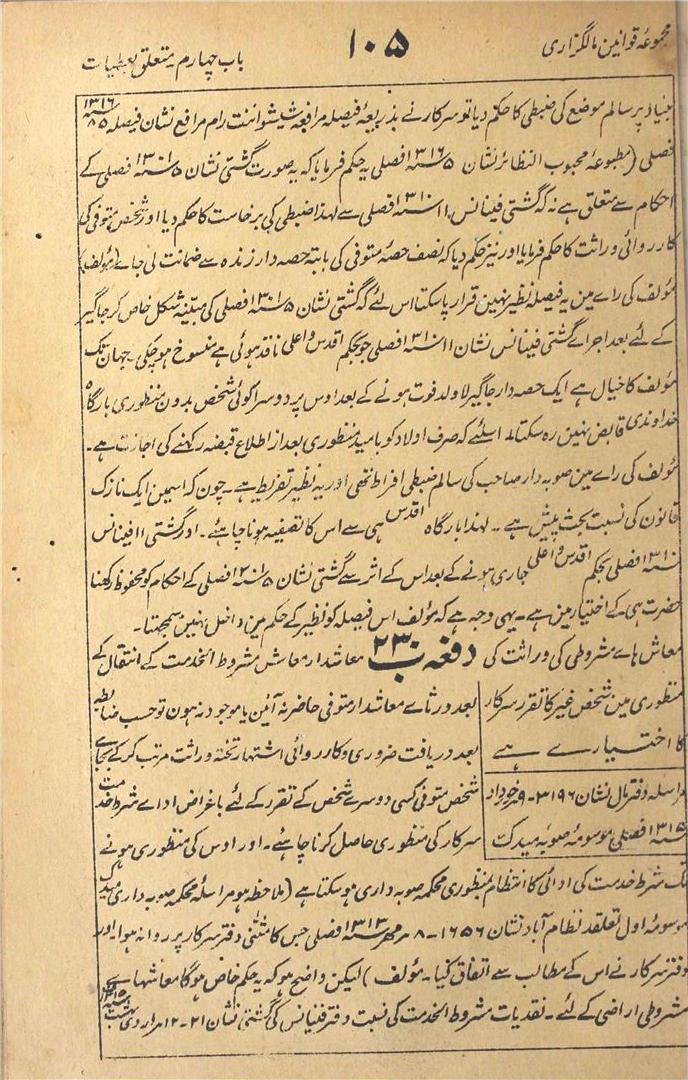 مجموعۂ قوانین مالگزاری
۱۰۵
باب چہارم متعلق بعطیات
بنیاد پر سالم موضع کی ضبطی کا حکم دیا تو سرکار نے بذریعۂ فیصلہ مرافعہ شیشو اننت رام مرافع نشان فیصلہ ۸۵ ۱۳۱۶
فصلی (مطبوعۂ محبوب النظائر نشان ۵ ۱۳۱۶ فصلی یہ حکم فرمایا کہ یہ صورت گشتی نشان ۵ ۱۳۰۱ فصلی کے
احکام سے متعلق ہے نہ کہ گشتی فینانس ۱۱ ۱۳۱۰ فصلی سے لہذا ضبطی کی برخاست کا حکم دیا اور شخص متوفی کی
کارروائی وراثت کا حکم فرمایا اور نیز حکم دیا کہ نصف حصہ متوفی کی بابتہ حصہ دار زندہ سے ضمانت لی جاے (مؤلف)
مؤلف کی راے مین یہ فیصلہ نظیر نہین قرار پا سکتا اس لئے کہ گشتی نشان ۵ ۱۳۰۱ فصلی کی مبتینہ شکل خاص کر جاگیر
کے لئے بعد اجراے گشتی فینانس نشان ۱۱ ۱۳۱۰ فصلی جو بحکم اقدس و اعلی نافذ ہوئی ہے منسوخ ہو چکی۔ جہان تک
مؤلف کا خیال ہے ایک حصہ دار جاگیر لا ولد فوت ہونے کے بعد اوس پر دوسرا کوئی شخص بدون منظوری بارگاہ
خداوندی قابض نہین رہ سکتا اسلئے کہ صرف اولاد کو بامید منظوری بعد از اطلاع قبضہ رکھنے کی اجازت ہے۔
مؤلف کی راے مین صوبہ دار صاحب کی سالم ضبطی افراط تھی اور یہ نظیر تفریط ہے۔ چون کہ اسمین ایک نازک
قانون کی نسبت بحث پیش ہے۔ لہذا بارگاہ اقدس ہی سے اس کا تصفیہ ہونا چاہئے۔ اور گشتی ۱۱ فینانس
۱۳۱۰ فصلی بحکم اقدس و اعلی جاری ہونے کے بعد اس کے اثر سے گشتی نشان ۵ ۱۳۰۱ فصلی کے احکام کو محفوظ رکھنا
حضرت ہی کے اختیار مین ہے۔ یہی وجہ ہے کہ مؤلف اس فیصلہ کو نظیر کے حکم مین داخل نہین سمجھتا۔
معاش ہاے مشروطی کی وراثت کی
منظوری مین شخص غیر کا تقرر سرکار
کا اختیار سے ہے
مراسلہ دفتر مال نشان ۳۱۹۶ - ۹ خورداد
۱۳۱۵ فصلی موسومۂ صوبہ میدک
دفعہ ۲۳۰ ب معاشدار معاش مشروط الخدمت کے انتقال کے
بعد ورثاے معاشدار متوفی حاضر نہ آئین یا موجود نہ ہون تو حسب ضابطہ
بعد دریافت ضروری و کارروائی اشتہار تختۂ وراثت مرتب کرکے بجاے
شخص متوفی کسی دوسرے شخص کے تقرر کے لئے باغراض اداے شرط خدمت
سرکار کی منظوری حاصل کرنا چاہئے۔ اور اوس کی منظوری ہونے
تک شرط خدمت کی ادائی کا انتظام بمنظوری محکمہ صوبہ داری ہو سکتا ہے (ملاحظہ ہو مراسلۂ محکمہ صوبہ داری میدک
موسومۂ اول تعلقد نظام آباد نشان ۱۶۵۶ - ۸ مہر ۱۳۱۳ فصلی جس کا مثنی دفتر سرکار پر روانہ ہوا اور
دفتر سرکار نے اس کے مطالب سے اتفاق کیا۔ مؤلف) لیکن واضح ہو کہ یہ حکم خاص ہوگا معاشہاے
مشروطی اراضی کے لئے۔ نقدیات مشروط الخدمت کی نسبت دفتر فینانس کی گشتی نشان ۲۱ - ۱۲